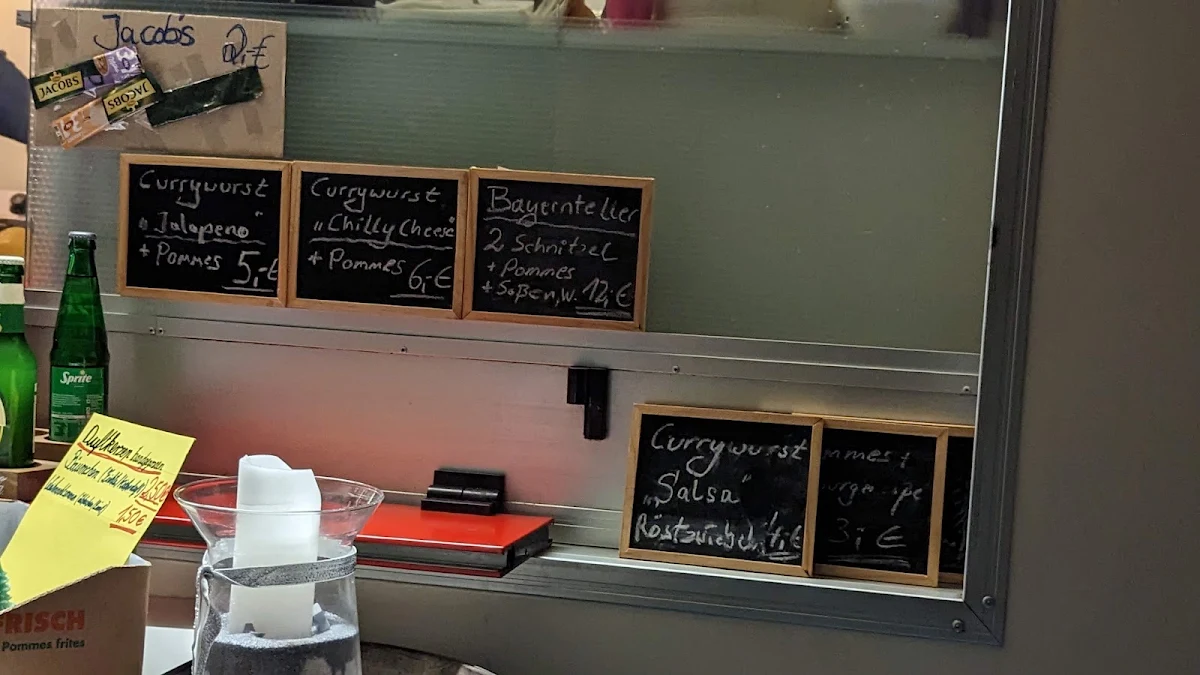 Jacobs 2,-€
JACOBS
JACOBS
Currywurst
"Jalapeno"
+ Pommes 5,-€
Currywurst
"Chilly Cheese"
+ Pommes 6,-€
Bayernteller
2 Schnitzel
+ Pommes
+ Soßen,W. 12,-€
Sprite
Duftkerzen
2,50€
1,50€
Currywurst
„Salsa"
Röstzwiebel 4,-€
mmes +
3,-€
FRISCH
Pommes frites